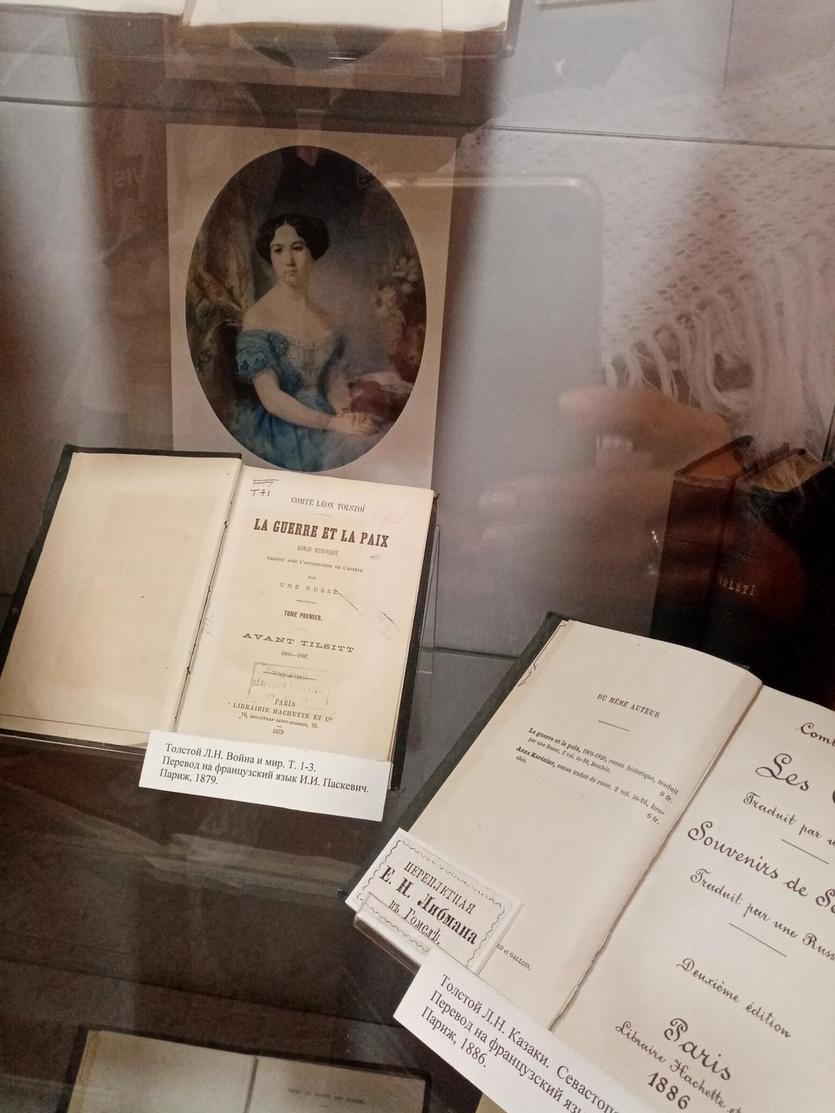 T41
COMTE LÉON TOLSTOÏ
LA GUERRE ET LA PAIX
ROMAN HISTORIQUE
TRADUIT AVEC L'AUTORISATION DE L'AUTEUR
PAR
UNE RUSSE
TOME PREMIER.
AVANT TILSITT
1805—1807.
PARIS
LIBRAIRIE HACHETTE ET Cie
79, BOULEVARD SAINT-GERMAIN, 79.
1879
Толстой Л.Н. Война и мир. Т. 1-3.
Перевод на французский язык И.И. Паскевич.
Париж, 1879.
OLSTÏ
DU MÊME AUTEUR
La guerre et la paix, 1805-1820, roman historique, traduit
par une Russe. 3 vol. in-16, brochés. 9 fr.
Anna Karénine, roman traduit du russe. 2 vol. in-16, bro-
chés. 6 fr.
ПЕРЕПЛЕТНАЯ
Е. Н. Либмана
въ Гомелѣ.
et GALLOIS.
Comt
Les C
Traduit par u
Souvenirs de S
Traduit par une Russ
Deuxième édition
Paris
Librairie Hachette et
1886
Толстой Л.Н. Казаки. Севастоп
Перевод на французский язы
Париж, 1886.